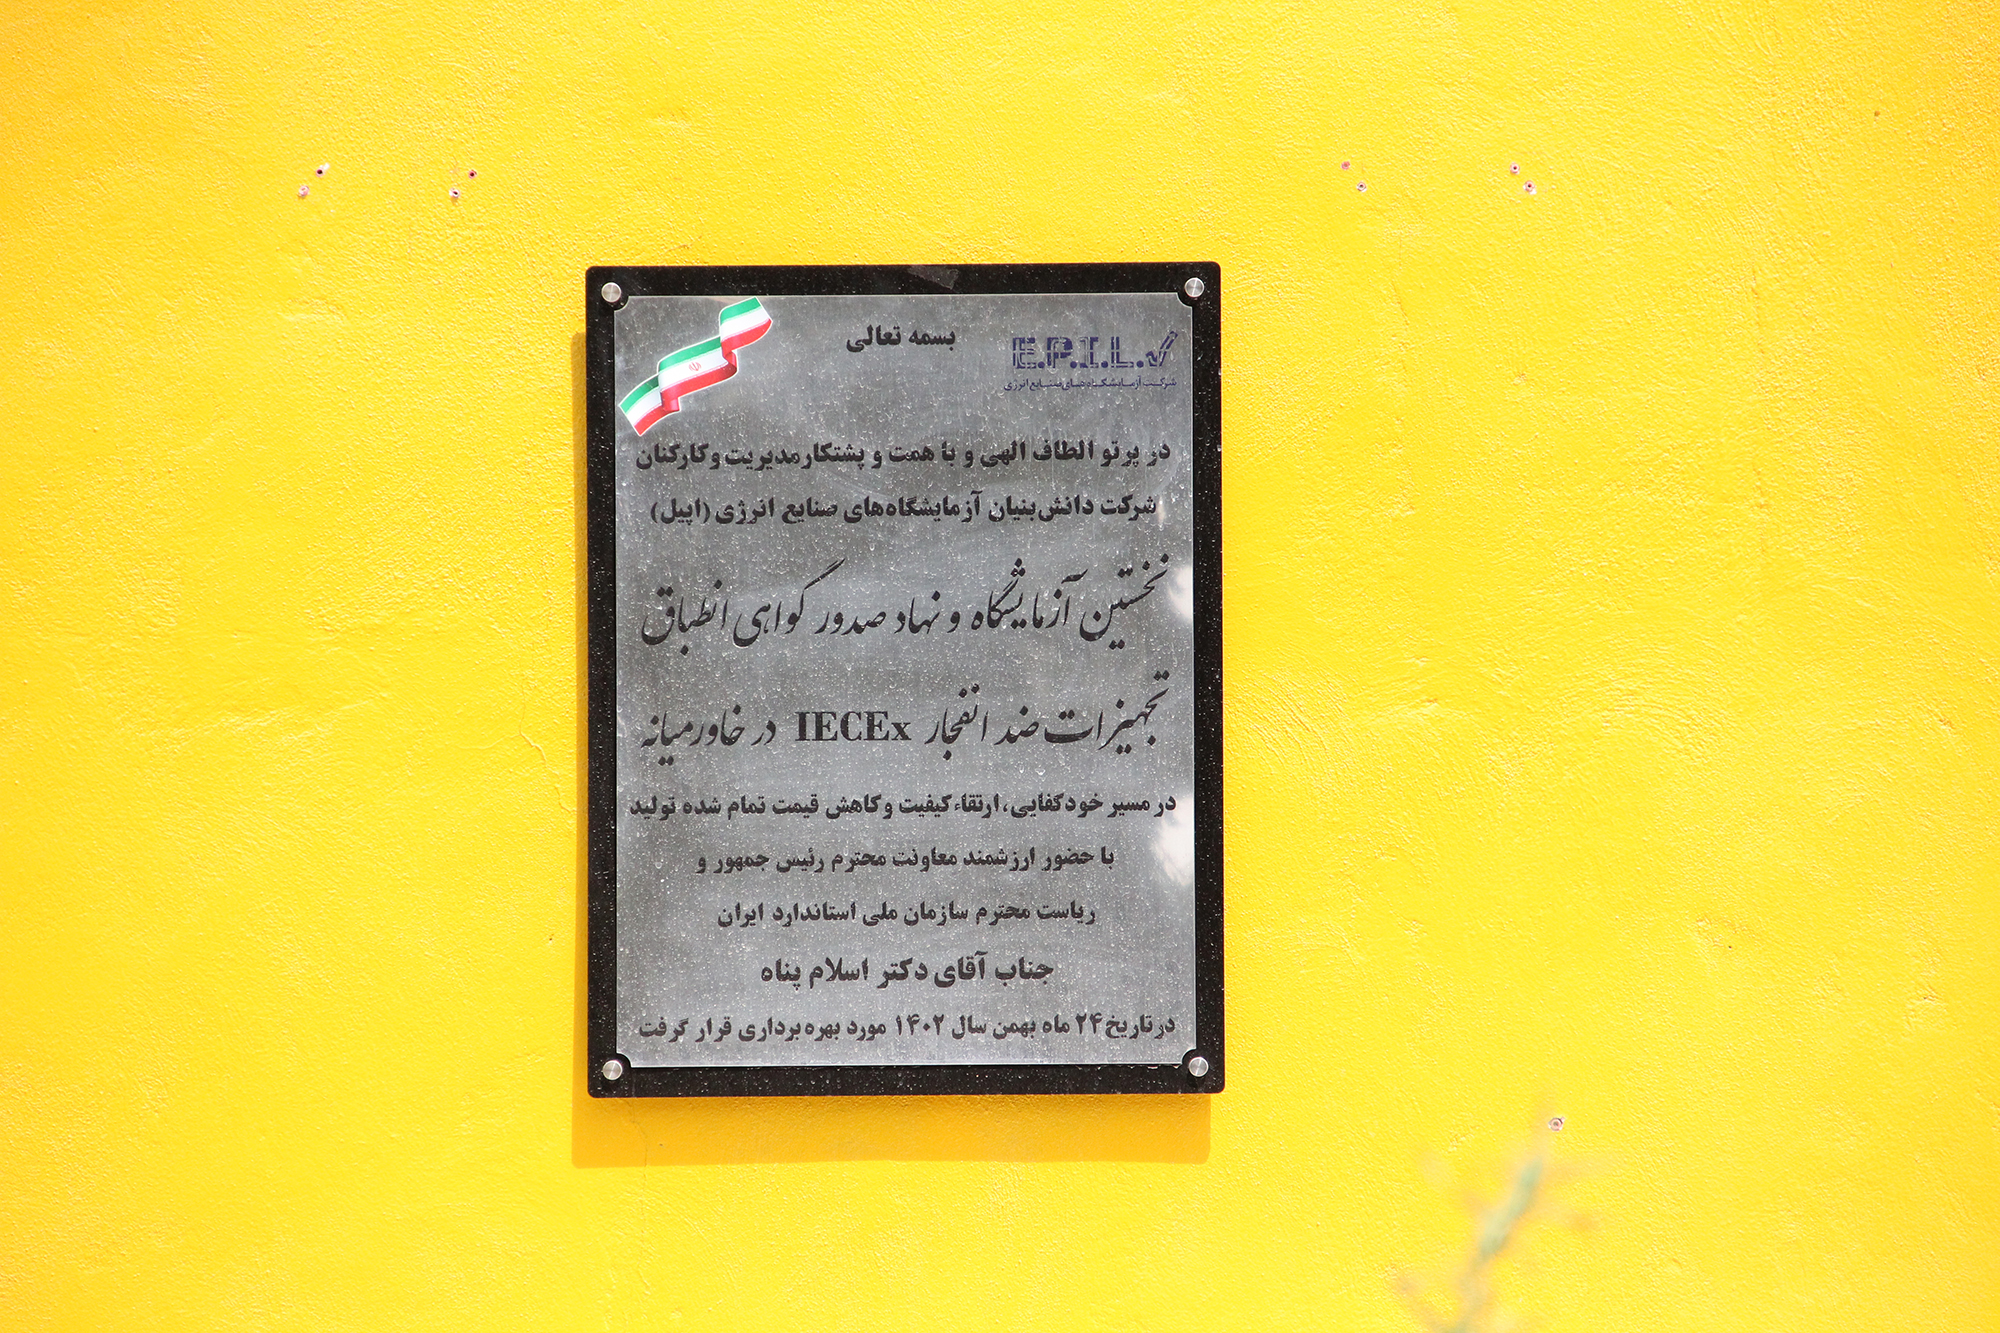 بسمه تعالی
E.P.I.L.
شرکت آزمایشگاه های صنایع انرژی
در پرتو الطاف الهی و با همت و پشتکار مدیریت و کارکنان
شرکت دانش‌بنیان آزمایشگاه‌های صنایع انرژی (اپیل)
نخستین آزمایشگاه و نهاد صدور گواهی انطباق
تجهیزات ضد انفجار IECEx در خاورمیانه
در مسیر خودکفایی، ارتقاء کیفیت و کاهش قیمت تمام شده تولید
با حضور ارزشمند معاونت محترم رئیس جمهور و
ریاست محترم سازمان ملی استاندارد ایران
جناب آقای دکتر اسلام پناه
در تاریخ ۲۴ ماه بهمن سال ۱۴۰۲ مورد بهره برداری قرار گرفت